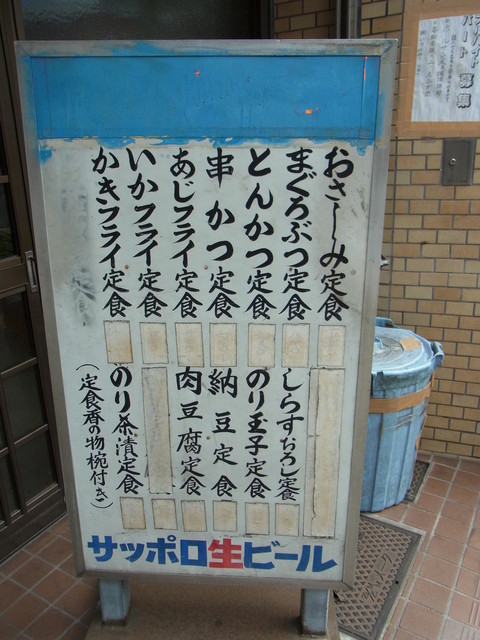 おさしみ定食
まぐろぶつ定食
とんかつ定食
串かつ定食
あじフライ定食
いかフライ定食
かきフライ定食
しらすおろし定食
のり玉子定食
納豆定食
肉豆腐定食
のり茶漬定食
(定食香の物椀付き)
サッポロ生ビール
募集